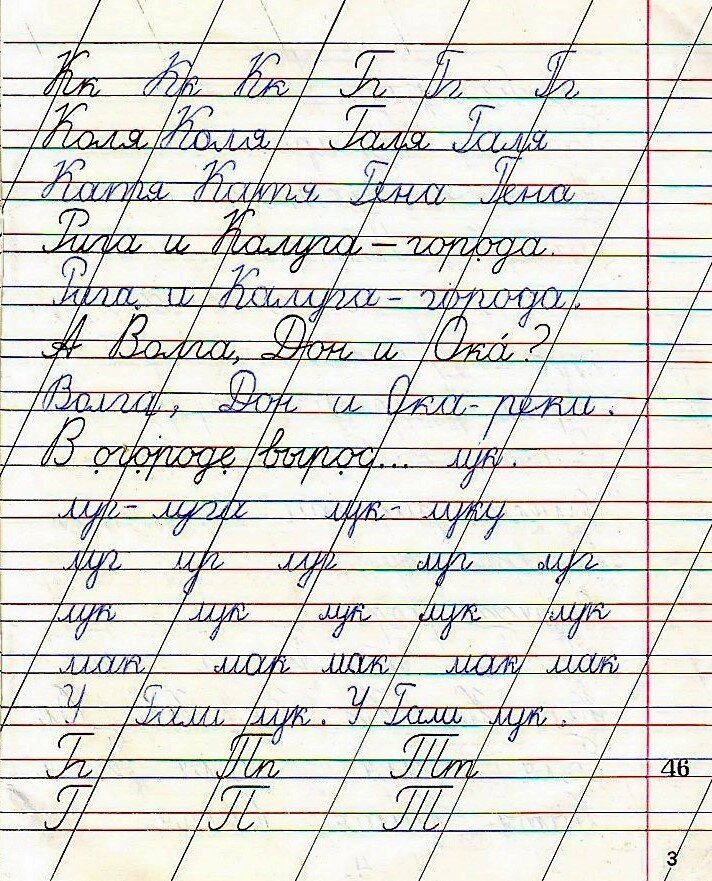 Кк Кк Кк Гг Гг Гг
Коля Коля Галя Галя
Катя Катя Гена Гена
Рига и Калуга – города.
Рига и Калуга – города.
А Волга, Дон и Ока́?
Волга, Дон и Ока - реки.
В огороде вырос... лук.
луг - луга лук - луку
луг луг луг луг луг
лук лук лук лук лук
мак мак мак мак мак
У Гали лук. У Гали лук.
Гг Пп Тт 46
Г П Т
3